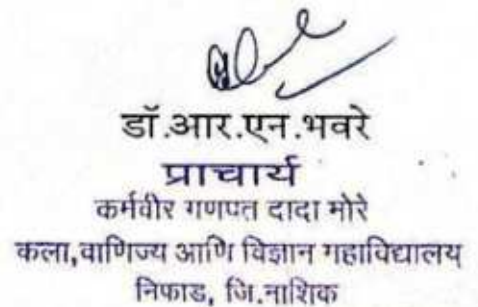 डॉ.आर.एन.भवरे
प्राचार्य
कर्मवीर गणपत दादा मोरे
कला,वाणिज्य आणि विज्ञान महाविद्यालय
निफाड, जि.नाशिक